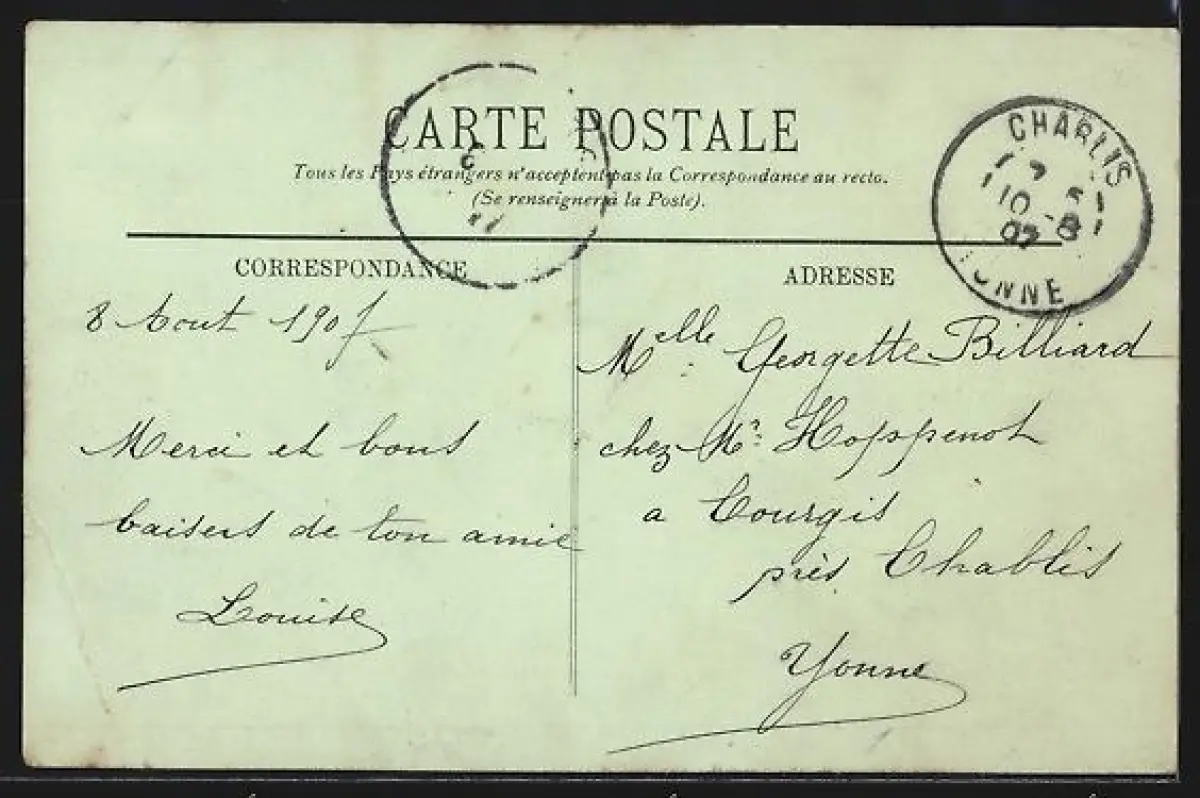 CARTE POSTALE
Tous les Pays étrangers n'acceptent pas la Correspondance au recto.
(Se renseigner à la Poste).
CHABLIS
10 8
07
YONNE
CORRESPONDANCE
8 Aout 1907
Merci et bons
baisers de ton amie
Louise
ADRESSE
Melle Georgette Billiard
chez Mr Hoppenot
a Courgis
près Chablis
Yonne